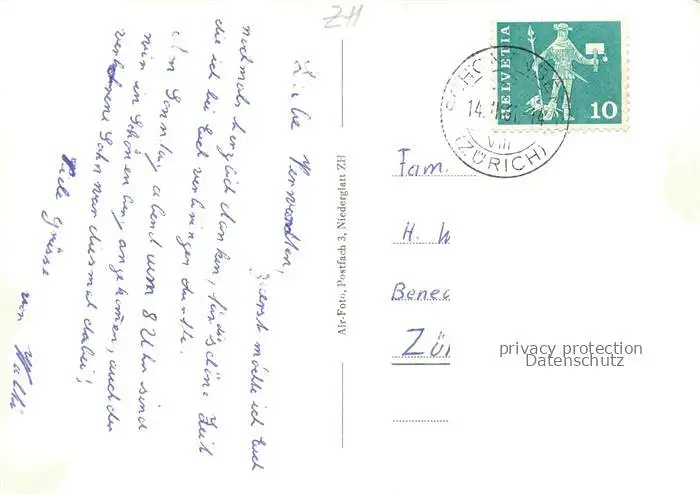 ZH
Liebe Verwandten,
Zuerst möchte ich Euch
nochmals herzlich danken, für die
die ich bei Euch verbringen durfte.
schöne Zeit
Am Sonntag abend um 8 Uhr sind
wir in Schönenberg angekommen, auch der
verlohrene Sohn war diesmal dabei!
Viele Grüsse
von Walti
Air-Foto, Postfach 3, Niederglatt ZH
HELVETIA
10
14.
VIII
(ZÜRICH)
Fam.
H. W
Benec
Zür
privacy protection
Datenschutz